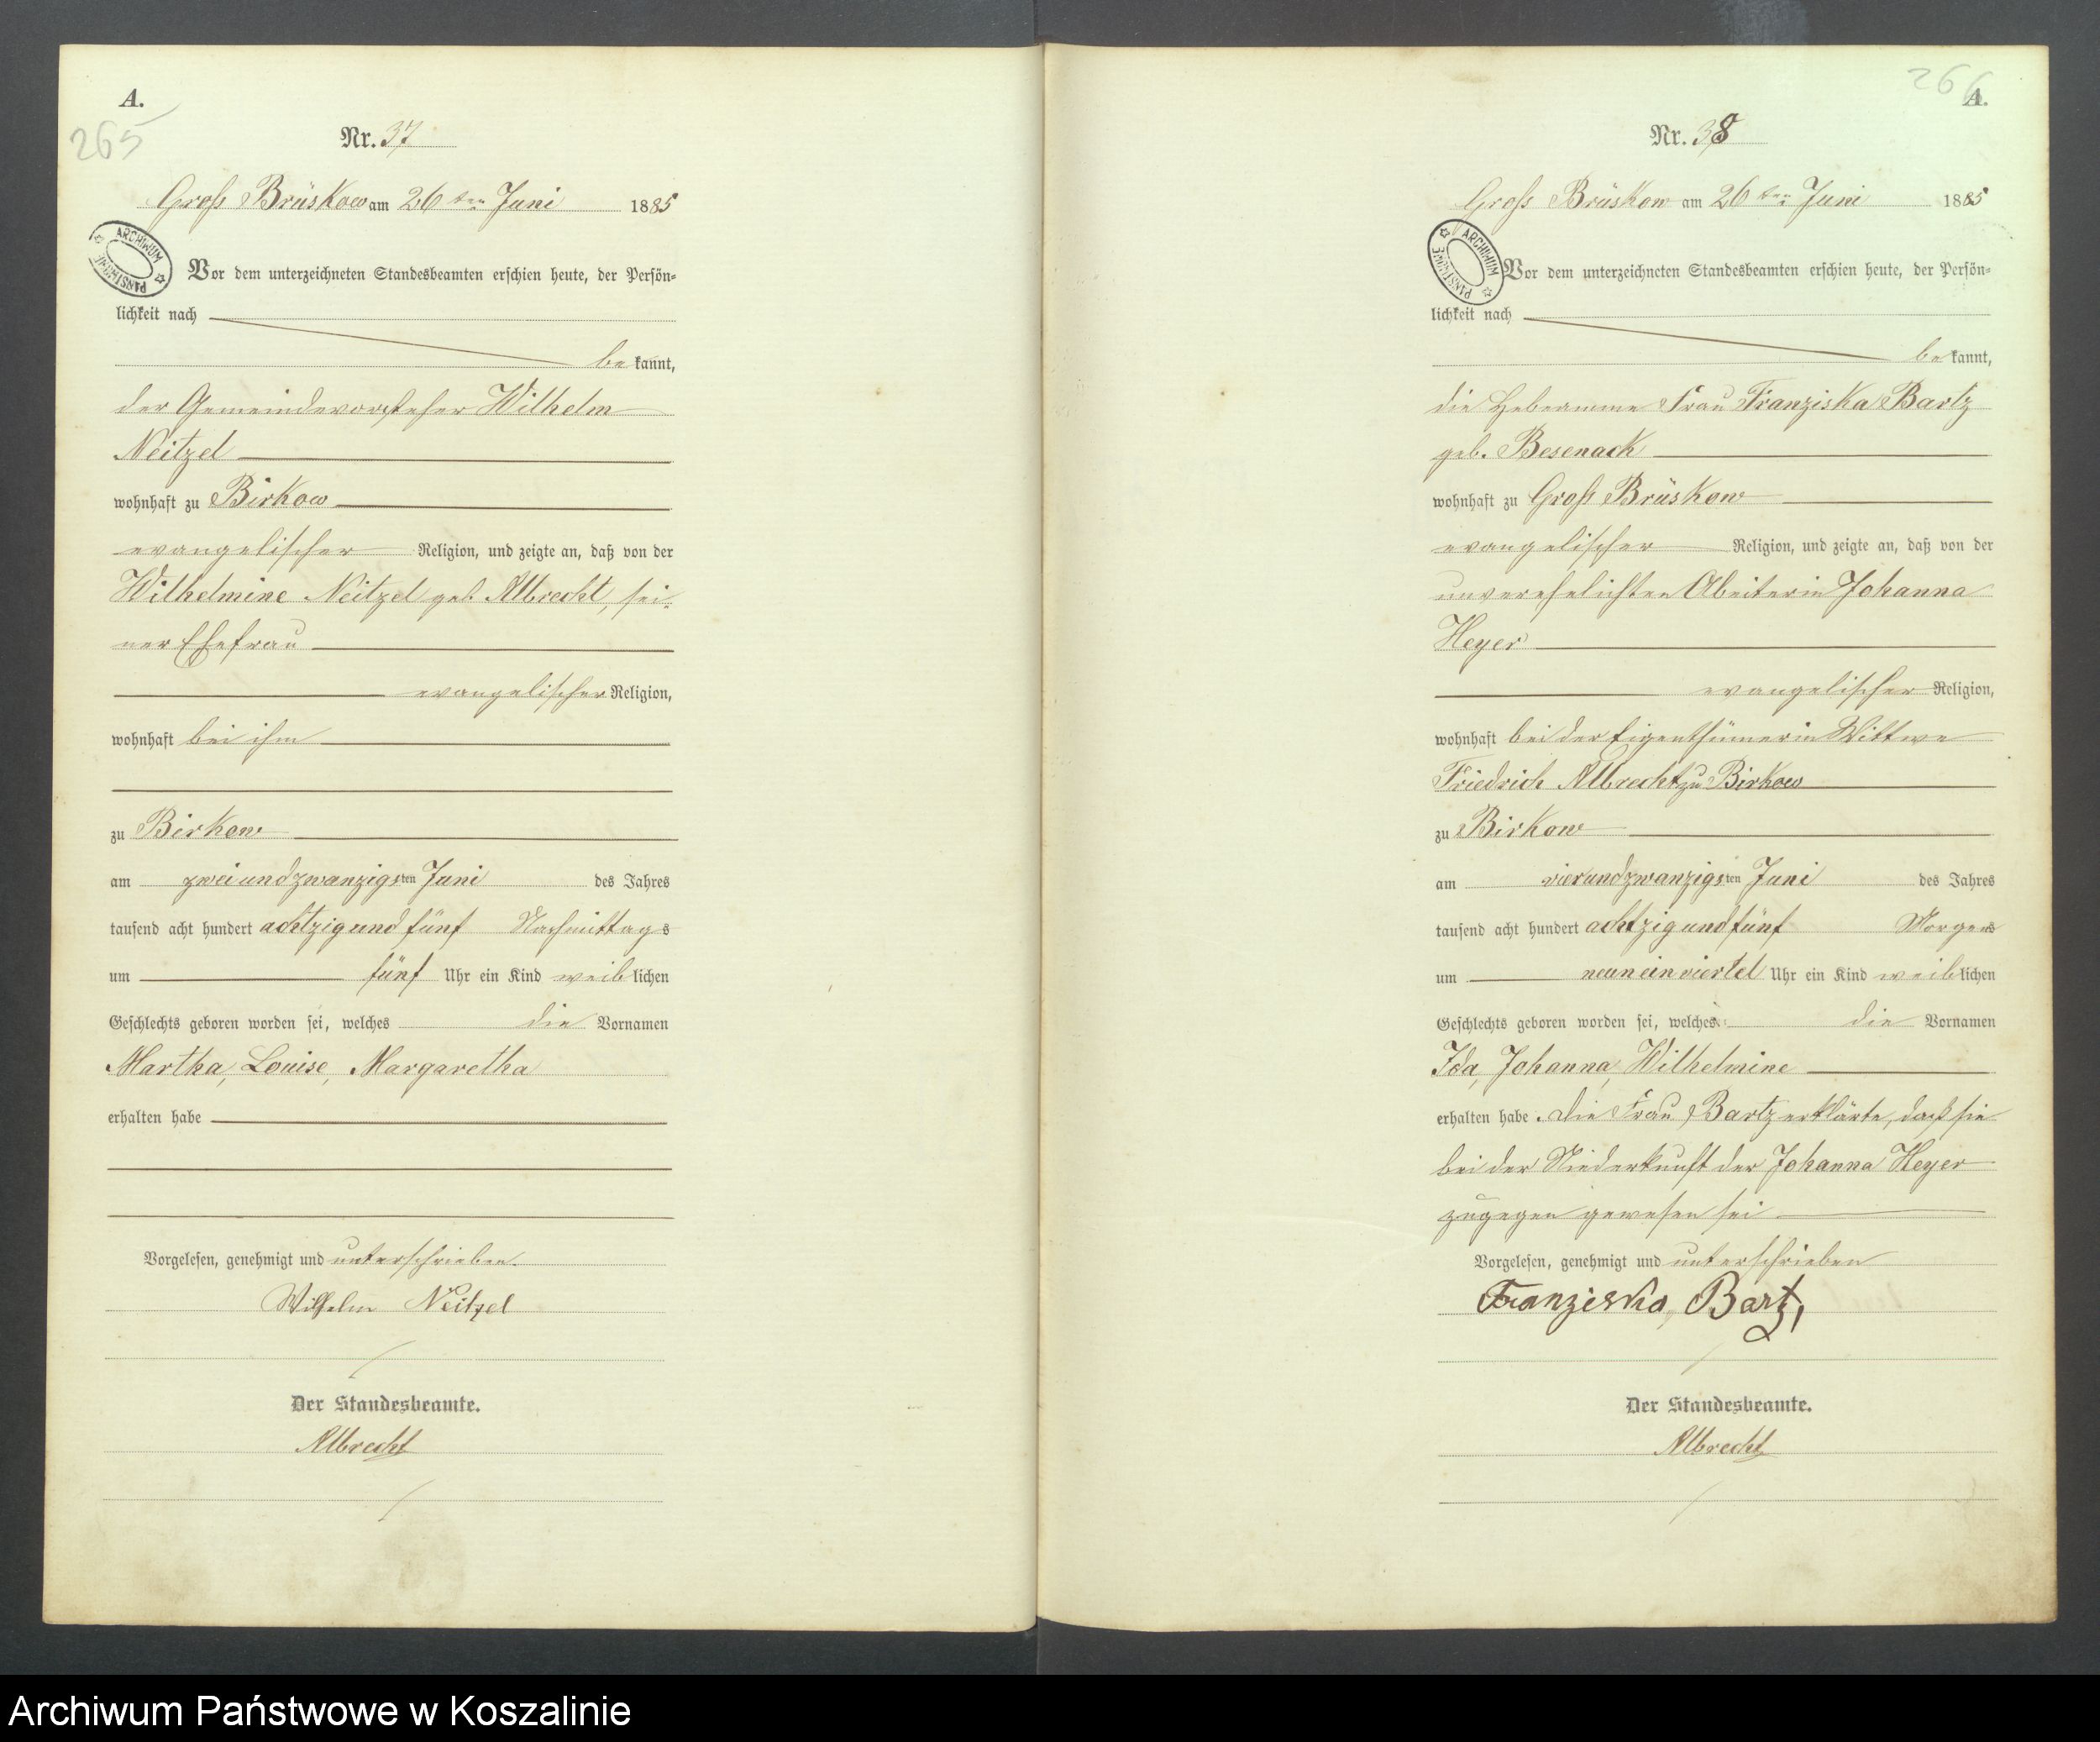 A.
265
Nr. 37
Groß Brüskow am 26ten Juni 1885
ARCHIWUM PAŃSTWOWE
Vor dem unterzeichneten Standesbeamten erschien heute, der Persön=
lichkeit nach
bekannt,
der Gemeindevorsteher Wilhelm
Neitzel
wohnhaft zu Birkow
evangelischer Religion, und zeigte an, daß von der
Wilhelmine Neitzel geb. Albrecht, sei=
ner Ehefrau
evangelischer Religion,
wohnhaft bei ihm
zu Birkow
am zweiundzwanzigsten Juni des Jahres
tausend acht hundert achtzig und fünf Nachmittags
um fünf Uhr ein Kind weiblichen
Geschlechts geboren worden sei, welches die Vornamen
Martha, Louise, Margaretha
erhalten habe
Vorgelesen, genehmigt und unterschrieben.
Wilhelm Neitzel
Der Standesbeamte.
Albrecht
266
A.
Nr. 38
Groß Brüskow am 26ten Juni 1885
ARCHIWUM PAŃSTWOWE
Vor dem unterzeichneten Standesbeamten erschien heute, der Persön=
lichkeit nach
bekannt,
die Hebeamme Frau Franziska Bartz
geb. Besenack
wohnhaft zu Groß Brüskow
evangelischer Religion, und zeigte an, daß von der
unverehelichten Abeiterin Johanna
Heyer
evangelischer Religion,
wohnhaft bei der Eigenthümerin Wittwe
Friedrich Albrecht zu Birkow
zu Birkow
am vierundzwanzigsten Juni des Jahres
tausend acht hundert achtzig und fünf Morgens
um neun ein viertel Uhr ein Kind weiblichen
Geschlechts geboren worden sei, welches die Vornamen
Ida, Johanna, Wilhelmine
erhalten habe. Die Frau Bartz erklärte, daß sie
bei der Niederkunft der Johanna Heyer
zugegen gewesen sei
Vorgelesen, genehmigt und unterschrieben
Franziska, Bartz,
Der Standesbeamte.
Albrecht
Archiwum Państwowe w Koszalinie